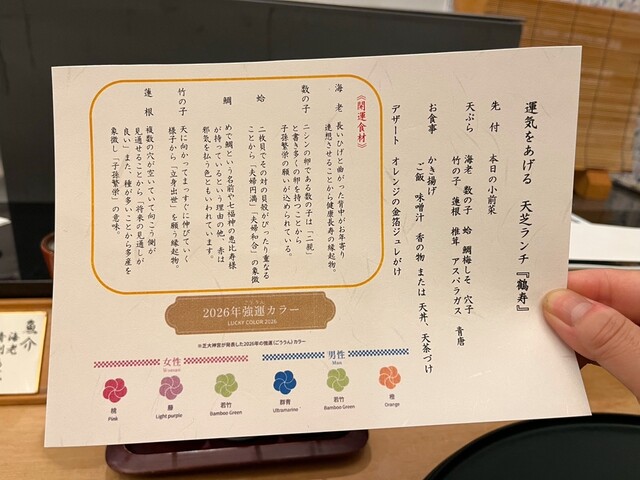 運気をあげる 天芝ランチ『鶴寿』
先付 本日の小前菜
天ぷら 海老 数の子 蛤 鯛梅しそ 穴子
竹の子 蓮根 椎茸 アスパラガス 青唐
お食事 かき揚げ
ご飯 味噌汁 香の物 または 天丼、天茶づけ
デザート オレンジの金箔ジュレがけ
《開運食材》
海老 長いひげと曲がった背中がお年寄り
連想させることから健康長寿の縁起物。
数の子 ニシンの卵である数の子は「二親」
と書き多くの卵を持つことから
子孫繁栄の願いが込められている。
蛤 二枚貝でその対の貝殻がぴったり重なる
ことから「夫婦円満」「夫婦和合」の象徴
鯛 めで鯛という名前や七福神の恵比寿様
が持っているという理由の他、赤は
邪気を払う色ともいわれています。
竹の子 天に向かってまっすぐに伸びていく
様子から「立身出世」を願う縁起物。
蓮根 複数の穴が空いていて向こう側が
見通せることから「将来の見通しが
良い」また、種が多いことから多産を
象徴し「子孫繁栄」の意味。
2026年強運カラー
LUCKY COLOR 2026
※芝大神宮が発表した2026年の強運(ごううん)カラー
女性
Woman
男性
Man
桃
Pink
藤
Light purple
若竹
Bamboo Green
群青
Ultramarine
若竹
Bamboo Green
橙
Orange
魚介
海老